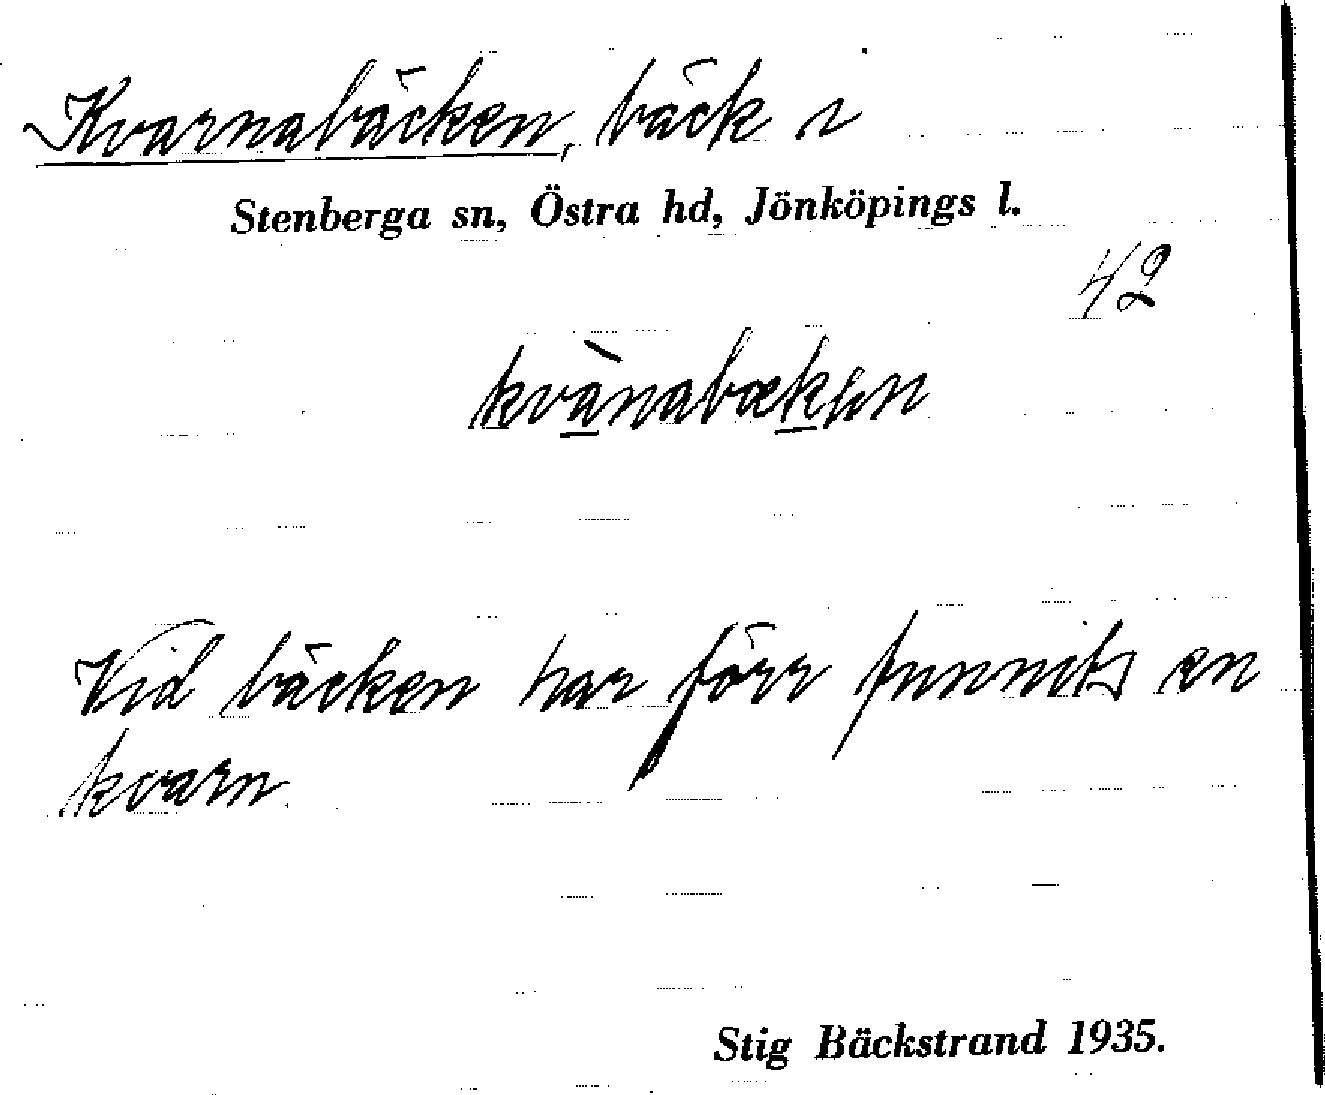 Kvarnabäcken, bäck i
Stenberga sn, Östra hd, Jönköpings l.
42
kvànabækən
Vid bäcken har förr funnits en
kvarn.
Stig Bäckstrand 1935.